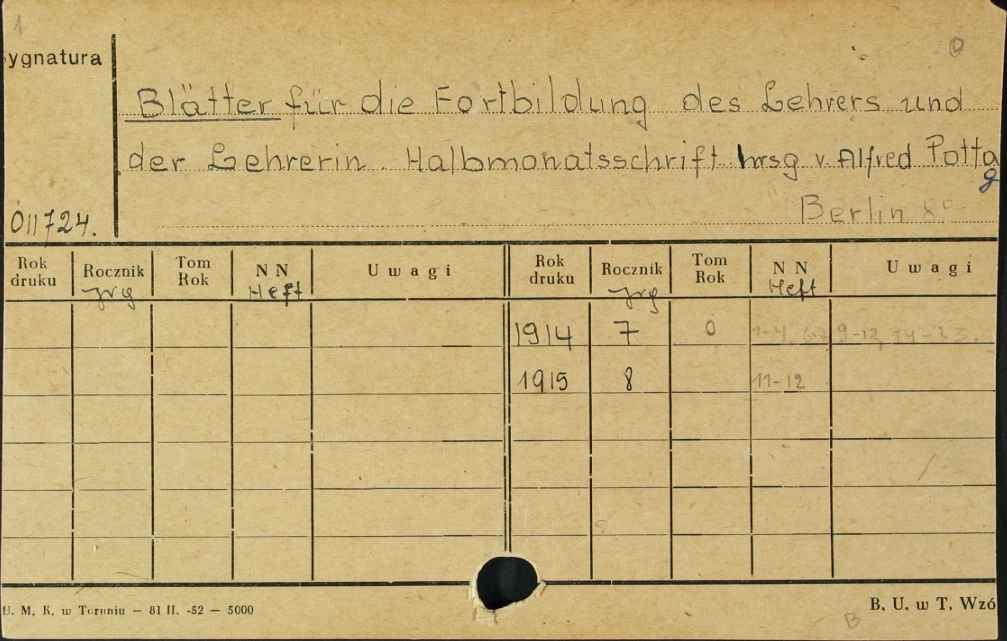 1
ygnatura
Blätter für die Fortbildung des Lehrers und
der Lehrerin. Halbmonatsschrift hrsg v. Alfred Pottag
Berlin 8°
011724.
Rok druku Rocznik Jrg Tom Rok NN Heft Uwagi Rok druku Rocznik Jrg Tom Rok NN Heft Uwagi
1914 7 0 9-12,
1915 8 11-12
U. M. K. w Toruniu — 81 II. -52 — 5000
B. U. w T. Wzó
B